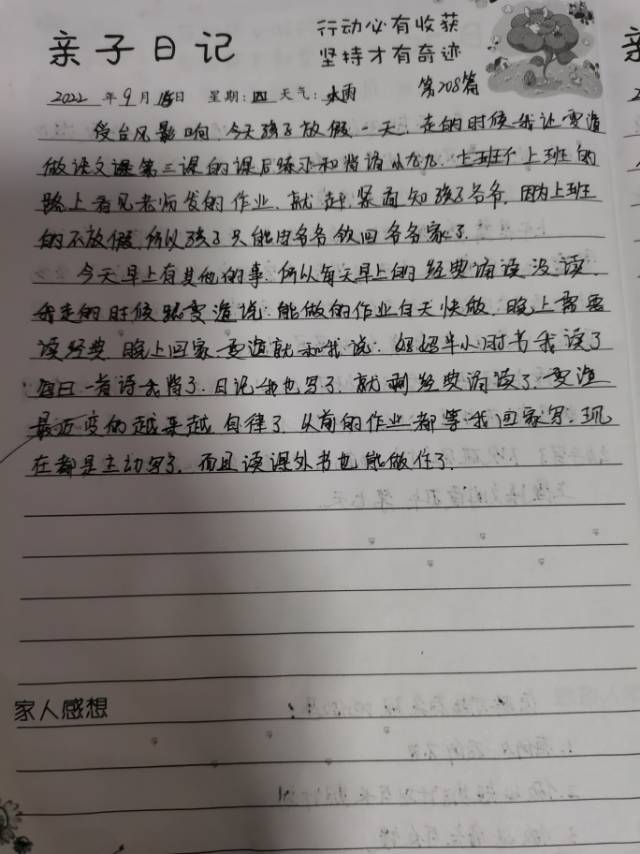 行动必有收获
亲子日记 坚持才有奇迹
2022年9月15日 星期:四 天气:雨 第208篇
受台风影响,今天孩子放假一天,走的时候我让雯道
做语文课第三课的课后练习和背诵小九九,上班的
路上看见老师发的作业,就赶紧通知孩子爷爷,因为上班
的不放假,所以孩子只能由爷爷领回爷爷家了。
今天早上有其他的事,所以每天早上的经典诵读没读,
我走的时候跟雯道说:能做的作业白天快做,晚上需要
读经典,晚上回家雯道就和我说:妈妈半小时书我读了
每日一首诗我背了,日记我也写了,就剩经典诵读了,雯道
最近变的越来越自律了,从前的作业都等我回家写,现
在都是主动写了,而且读课外书也能做住了。
家人感想